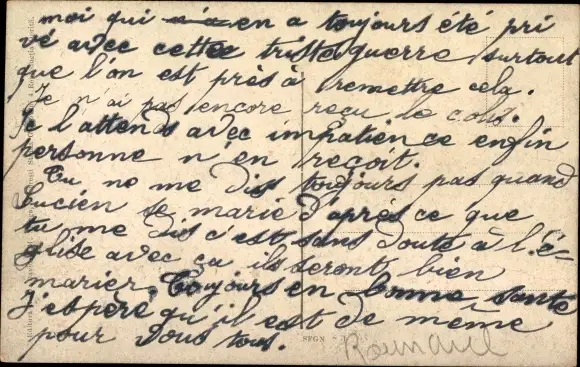 moi qui n'en a toujours été pri
vé avec cette triste guerre surtout
que l'on est près à remettre cela.
Je n'ai pas encore reçu le colis.
Je l'attends avec impatience enfin
personne n'en reçoit.
Tu ne me dis toujours pas quand
Lucien se marie d'après ce que
tu me dis c'est sans doute à l'é-
glise avec ça ils seront bien
marier. Toujours en bonne santé
J'espère qu'il est de même
pour vous tous.
SFGN